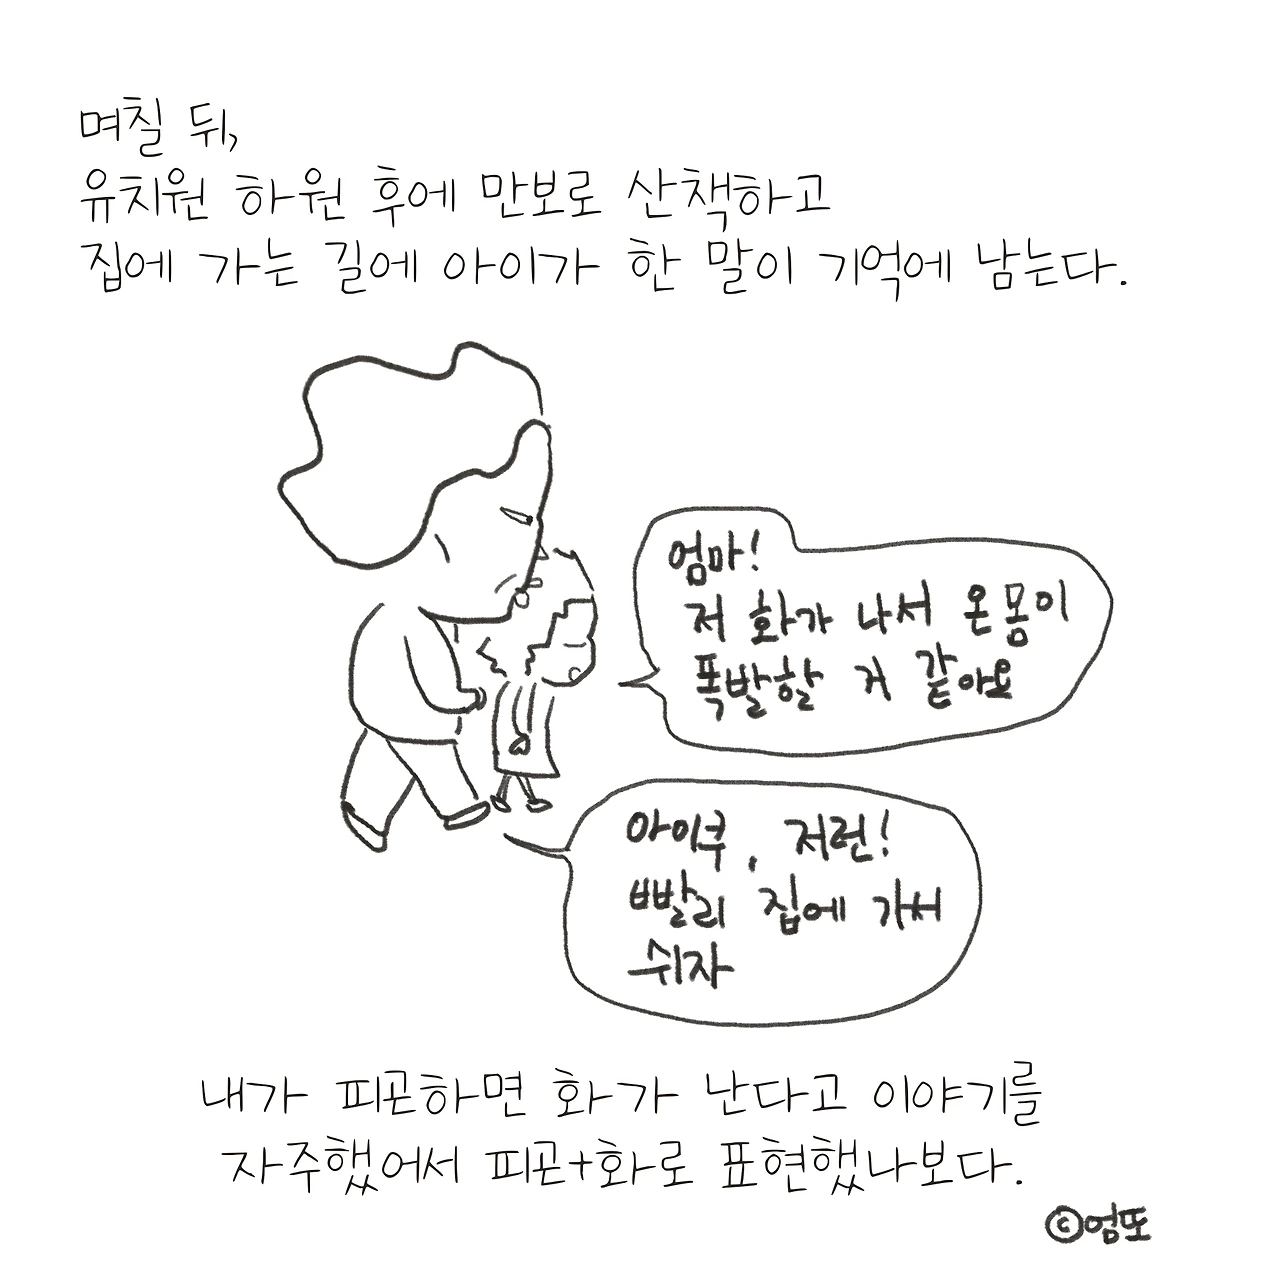 며칠 뒤,
유치원 하원 후에 만보로 산책하고
집에 가는 길에 아이가 한 말이 기억에 남는다.
엄마!
저 화가 나서 온몸이
폭발할 거 같아요
아이쿠, 저런!
빨리 집에 가서
쉬자
내가 피곤하면 화가 난다고 이야기를
자주했어서 피곤+화로 표현했나보다.
©엄또